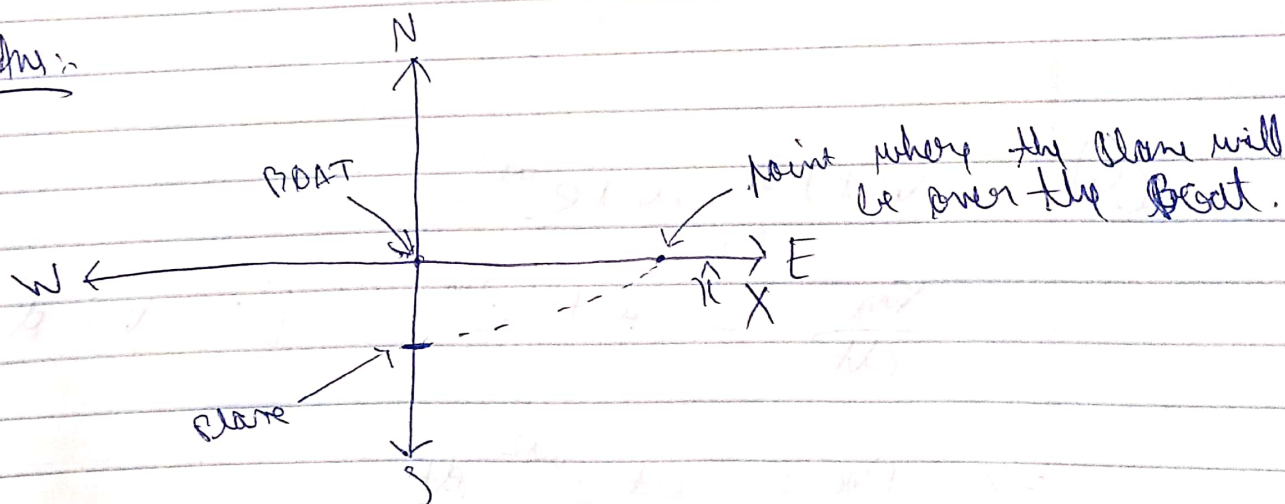 Ans:-
N
BOAT
point where the Plane will
be over the Boat.
W
E
x̂ X
Plane
S